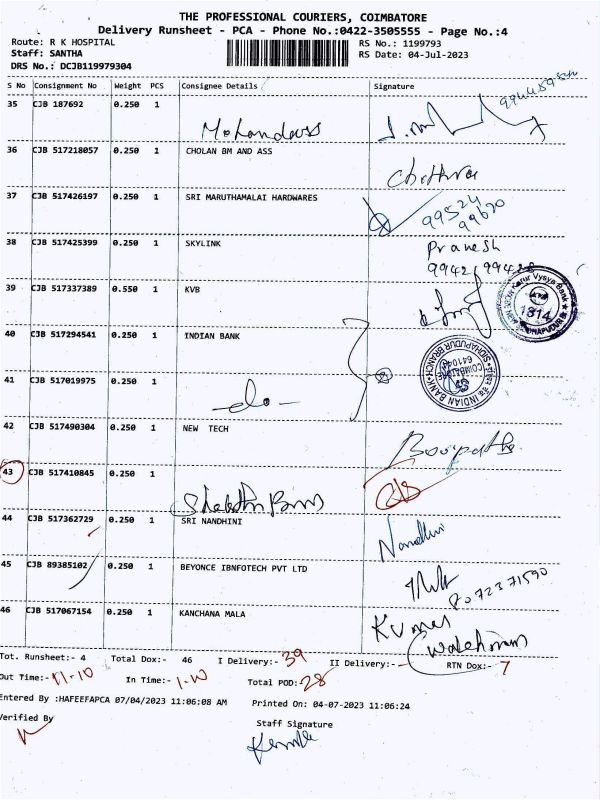 THE PROFESSIONAL COURIERS, COIMBATORE
Delivery Runsheet - PCA - Phone No.:0422-3505555 - Page No.:4
Route: R K HOSPITAL RS No.: 1199793
Staff: SANTHA RS Date: 04-Jul-2023
DRS No.: DCJB119979304
S No Consignment No Weight PCS Consignee Details Signature
35 CJB 187692 0.250 1
Mohandass
36 CJB 517218057 0.250 1 CHOLAN BM AND ASS
Chithra
37 CJB 517426197 0.250 1 SRI MARUTHAMALAI HARDWARES
99524
99670
38 CJB 517425399 0.250 1 SKYLINK
Pranesh
39 CJB 517337389 0.550 1 KVB
1814
40 CJB 517294541 0.250 1 INDIAN BANK
INDIAN BANK SIDHAPUDUR BRANCH COIMBATORE
41 CJB 517019975 0.250 1
-do-
42 CJB 517490304 0.250 1 NEW TECH
Boopathi
43 CJB 517410845 0.250 1
44 CJB 517362729 0.250 1 SRI NANDHINI
Nandhini
45 CJB 89385102 0.250 1 BEYONCE IBNFOTECH PVT LTD
46 CJB 517067154 0.250 1 KANCHANA MALA
Kumar
Watchman
Tot. Runsheet:- 4 Total Dox:- 46 I Delivery:- 39 II Delivery:- - RTN Dox:- 7
Out Time:- 11.10 In Time:- Total POD: 28
Entered By :HAFEEFAPCA 07/04/2023 11:06:08 AM Printed On: 04-07-2023 11:06:24
Verified By Staff Signature